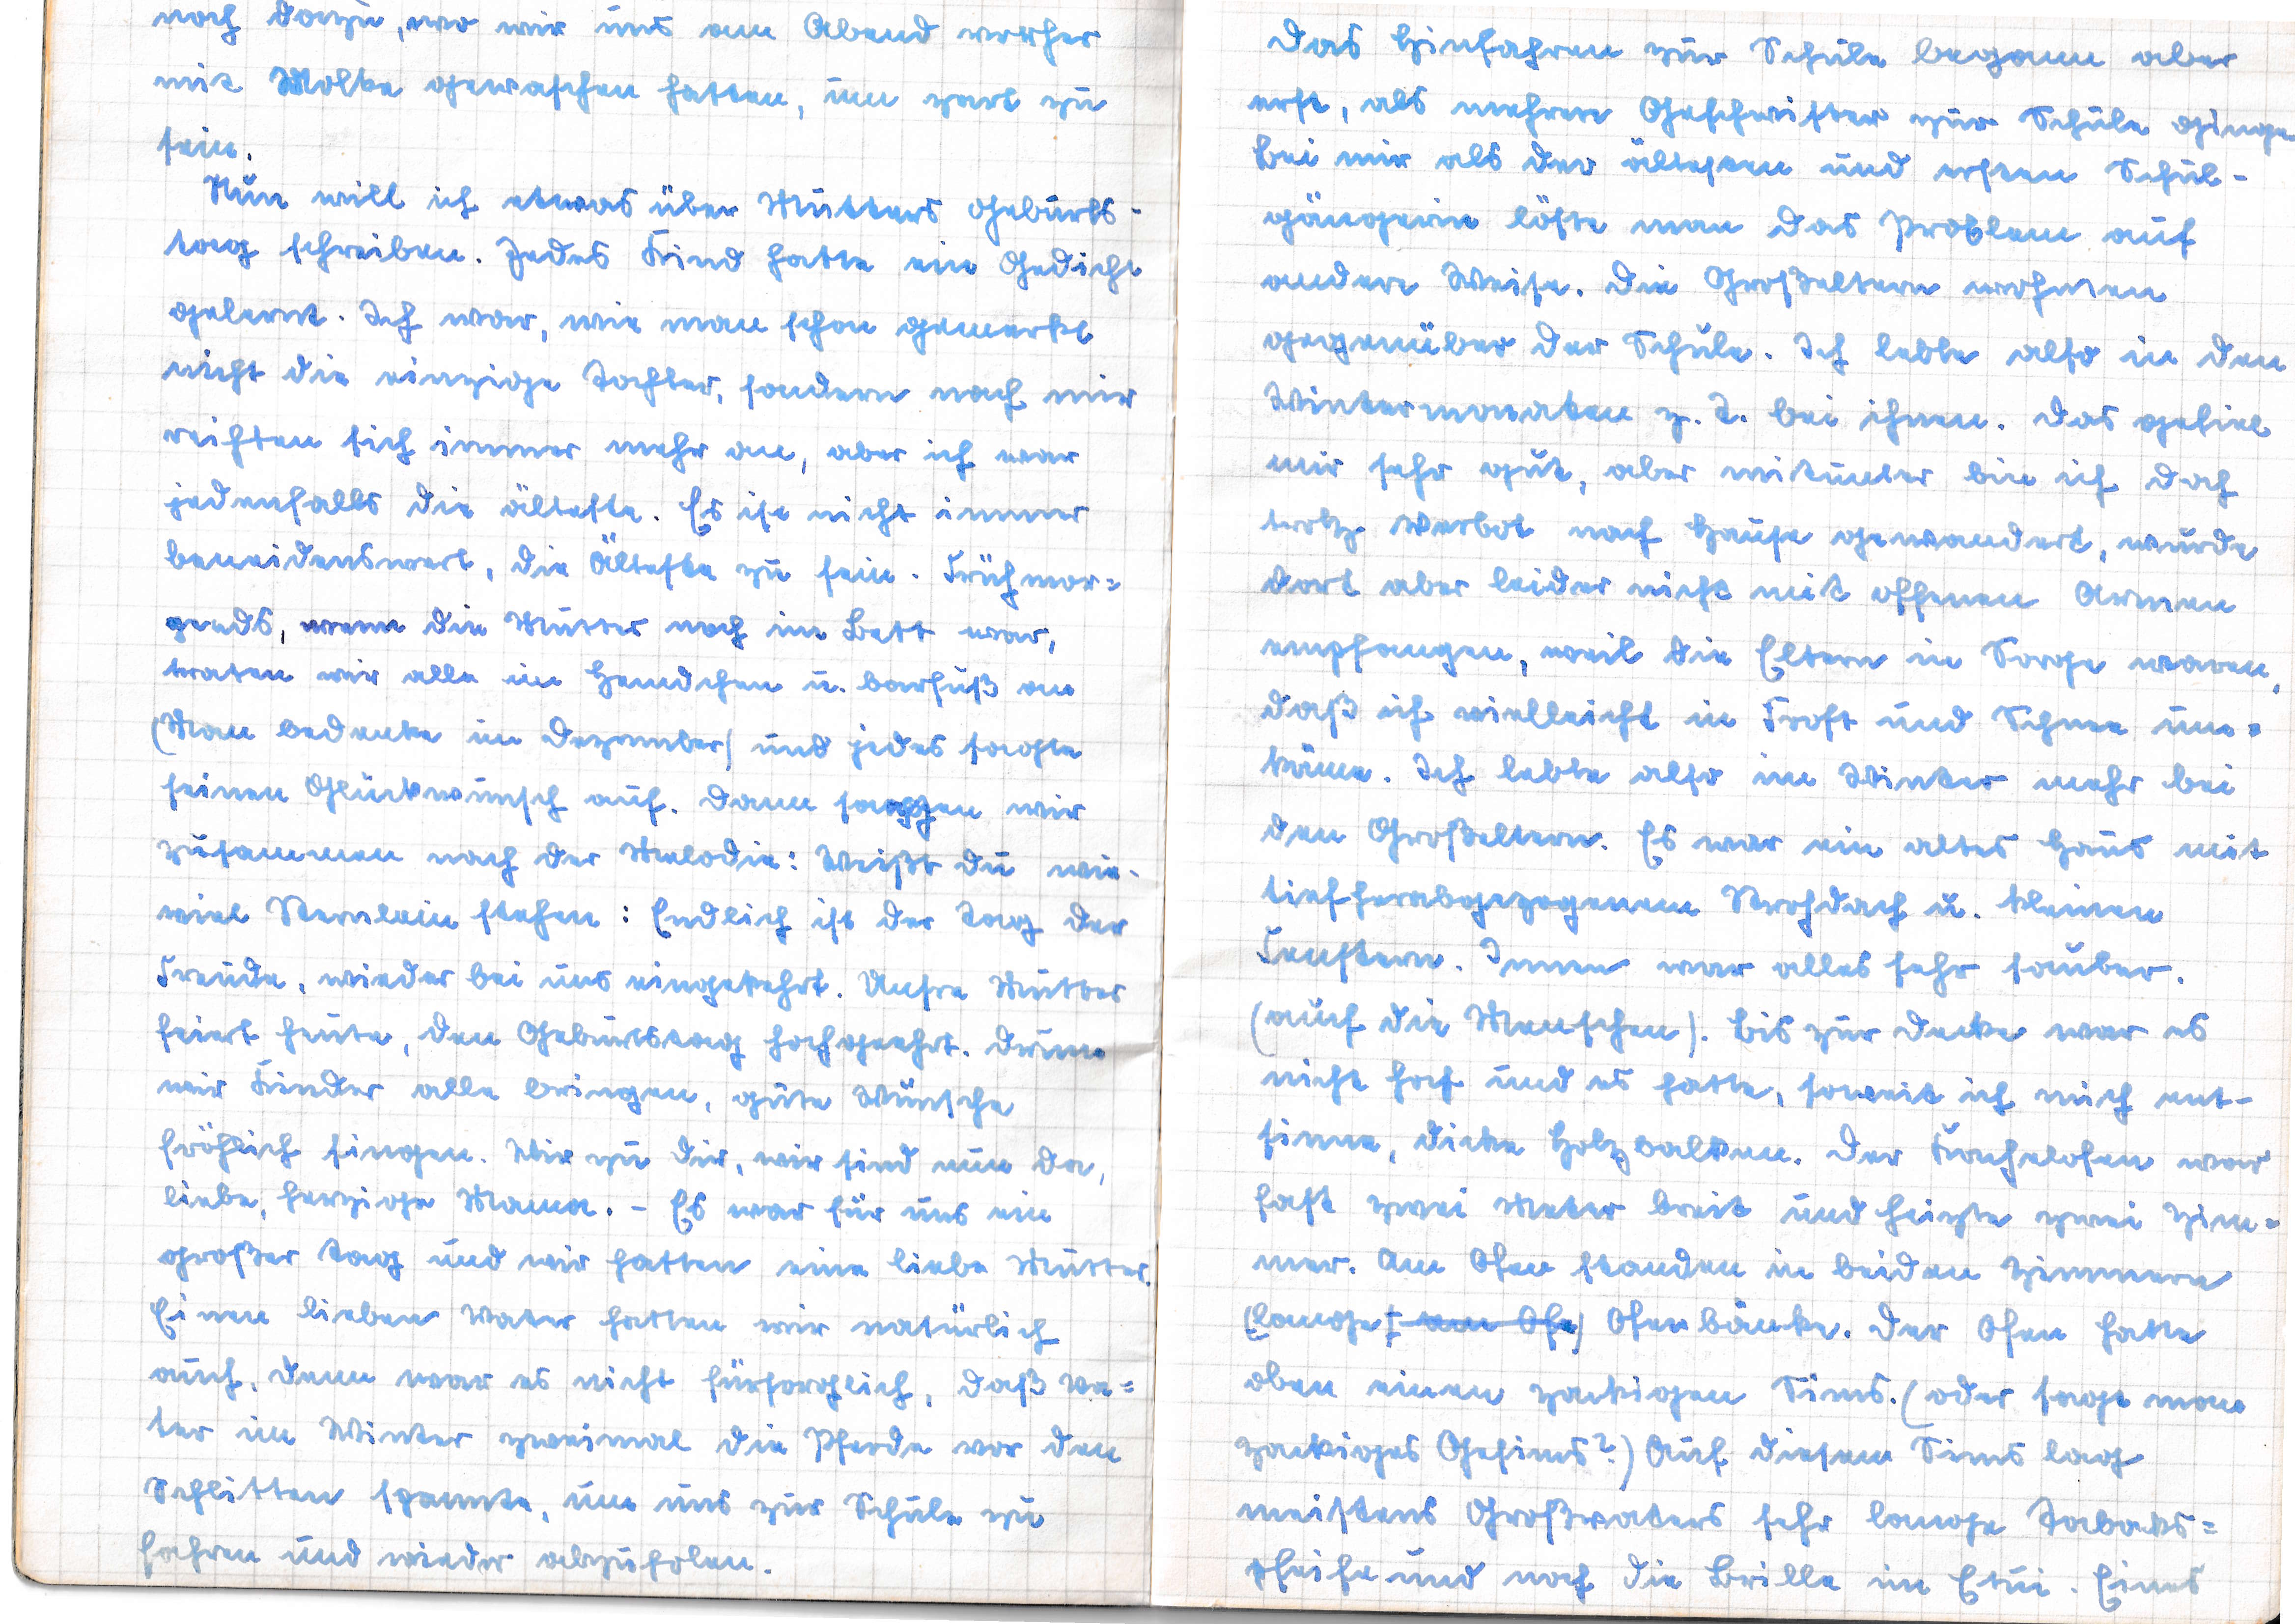 noch dazu, wo wir uns am Abend vorher
mit Molke gewaschen hatten, um zart zu
sein.
Nun will ich etwas über Mutters Geburts-
tag schreiben. Jedes Kind hatte ein Gedicht
gelernt. Ich war, wie man schon gemerkt
nicht die einzige Tochter, sondern nach mir
reihten sich immer mehr an, aber ich war
jedenfalls die älteste. Es ist nicht immer
beneidenswert, die Älteste zu sein. Frühmor=
gends, wenn die Mutter noch im Bett war,
traten wir alle im Hemdchen u. barfuß an
(Man bedenke im Dezember) und jedes sagte
seinen Glückwunsch auf. Dann sangen wir
zusammen nach der Melodie: Weißt du wie-
viel Sternlein stehen: Endlich ist der Tag der
Freude, wieder bei uns eingekehrt. Unsre Mutter
feiert heute, den Geburtstag hochgeehrt. Drum
wir Kinder alle bringen, gute Wünsche
fröhlich singen. Wir zu dir, wir sind nun da,
liebe, herzige Mama. - Es war für uns ein
großer Tag und wir hatten eine liebe Mutter.
Einen lieben Vater hatten wir natürlich
auch, denn war es nicht fürsorglich, daß Va=
ter im Winter zweimal die Pferde vor den
Schlitten spannte, um uns zur Schule zu
fahren und wieder abzuholen.
Das Hinfahren zur Schule begann aber
erst, als mehrere Geschwister zur Schule gingen
Bei mir als der ältesten und ersten Schul-
gängerin löste man das Problem auf
andere Weise. Die Großeltern wohnten
gegenüber der Schule. Ich lebte also in den
Wintermonaten z. T. bei ihnen. Das gefiel
mir sehr gut, aber mitunter bin ich doch
trotz Verbot nach Hause gewandert, wurde
dort aber leider nicht mit offenen Armen
empfangen, weil die Eltern in Sorge waren,
daß ich vielleicht in Frost und Schnee um=
käme. Ich lebte also im Winter mehr bei
den Großeltern. Es war ein altes Haus mit
tiefherabgezogenem Strohdach u. kleinen
Fenstern. Innen war alles sehr sauber.
(auch die Menschen). Bis zur Decke war es
nicht hoch und es hatte, soweit ich mich ent-
sinne, dicke Holzbalken. Der Kachelofen war
fast zwei Meter breit und heizte zwei Zim=
mer. Am Ofen standen in beiden Zimmern
(lange) am Ofe) Ofenbänke. Der Ofen hatte
oben einen zackigen Sims. (oder sagt man
zackiges Gesims?) Auf diesem Sims lag
meistens Großvaters sehr lange Tabaks=
pfeife und noch die Brille im Etui. Eines